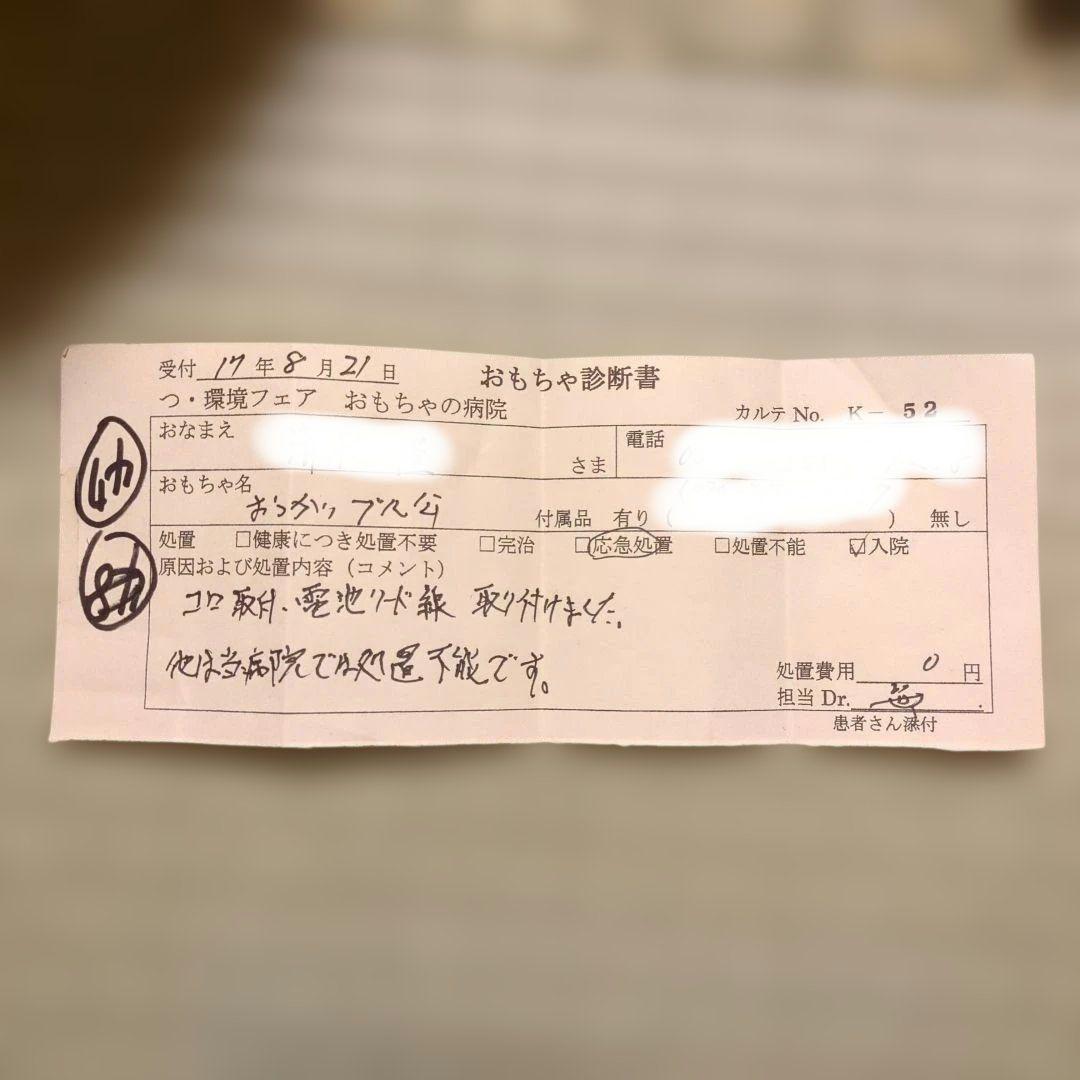 受付 17 年 8 月 21 日 おもちゃ診断書
つ・環境フェア おもちゃの病院 カルテ No. K－52
おなまえ さま 電話
おもちゃ名 付属品 有り ( ) 無し
処置 □健康につき処置不要 □完治 □応急処置 □処置不能 ☑入院
原因および処置内容（コメント）
コロ取付、電池リード線 取り付けました。
他は当病院では処置不能です。
処置費用 0 円
担当 Dr.
患者さん添付